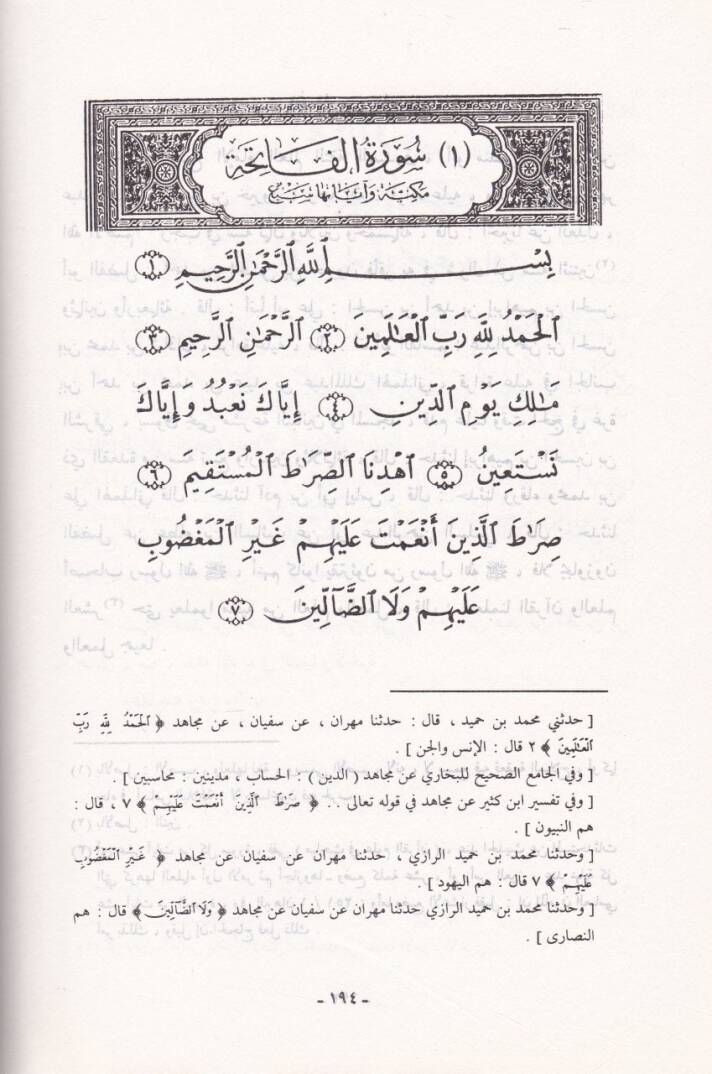 (١) سُورَةُ الفَاتِحَة
مكيّة وآياتها سَبْع
بِسْمِ ٱللَّهِ ٱلرَّحْمَٰنِ ٱلرَّحِيمِ ۝١
ٱلْحَمْدُ لِلَّهِ رَبِّ ٱلْعَٰلَمِينَ ۝٢ ٱلرَّحْمَٰنِ ٱلرَّحِيمِ ۝٣
مَٰلِكِ يَوْمِ ٱلدِّينِ ۝٤ إِيَّاكَ نَعْبُدُ وَإِيَّاكَ
نَسْتَعِينُ ۝٥ ٱهْدِنَا ٱلصِّرَٰطَ ٱلْمُسْتَقِيمَ ۝٦
صِرَٰطَ ٱلَّذِينَ أَنْعَمْتَ عَلَيْهِمْ غَيْرِ ٱلْمَغْضُوبِ
عَلَيْهِمْ وَلَا ٱلضَّآلِّينَ ۝٧
[ حدثني محمد بن حميد ، قال : حدثنا مهران ، عن سفيان ، عن مجاهد ﴿ ٱلْحَمْدُ لِلَّهِ رَبِّ
ٱلْعَٰلَمِينَ ﴾ ٢ قال : الإنس والجن ] .
[ وفي الجامع الصحيح للبخاري عن مجاهد ( الدين ) : الحساب ، مدينين : محاسبين ] .
[ وفي تفسير ابن كثير عن مجاهد في قوله تعالى .. ﴿ صِرَٰطَ ٱلَّذِينَ أَنْعَمْتَ عَلَيْهِمْ ﴾ ٧ ، قال :
هم النبيون ] .
[ وحدثنا محمد بن حميد الرازي ، حدثنا مهران عن سفيان عن مجاهد ﴿ غَيْرِ ٱلْمَغْضُوبِ
عَلَيْهِمْ ﴾ ٧ قال : هم اليهود ] .
[ وحدثنا محمد بن حميد الرازي حدثنا مهران عن سفيان عن مجاهد ﴿ وَلَا ٱلضَّآلِّينَ ﴾ قال : هم
النصارى ] .
- ١٩٤ -